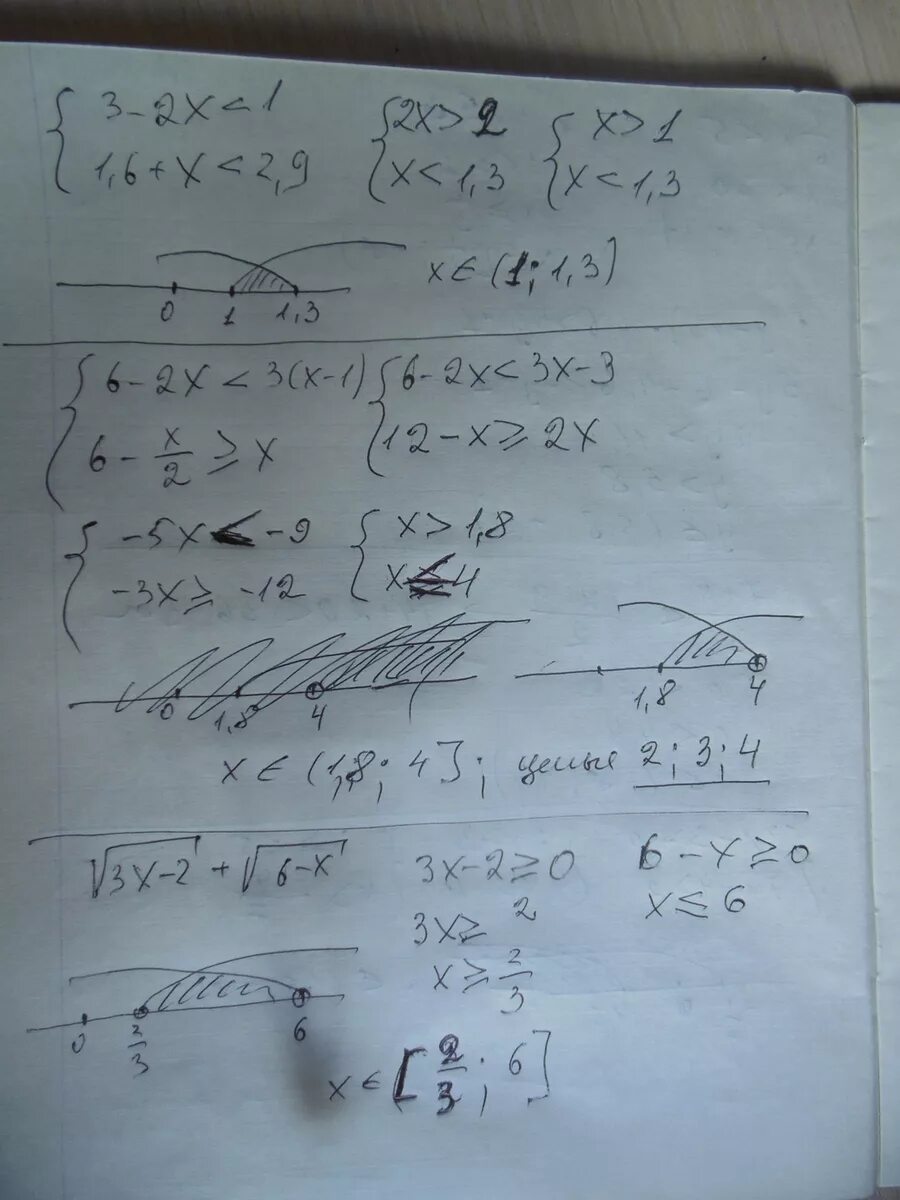 { 3-2x<1 { 2x>2 { x>1
{ 1,6+x<2,9 { x<1,3 { x<1,3
x∈(1; 1,3)
0 1 1,3
{ 6-2x<3(x-1) { 6-2x<3x-3
{ 6-x/2≥x { 12-x≥2x
{ -5x<-9 { x>1,8
{ -3x≥-12 { x≤4
0 1,8 4 1,8 4
x∈(1,8; 4]; целые 2; 3; 4
√3x-2 + √6-x 3x-2≥0 6-x≥0
3x≥2 x≤6
x≥2/3
0 2/3 6
x∈[2/3; 6]